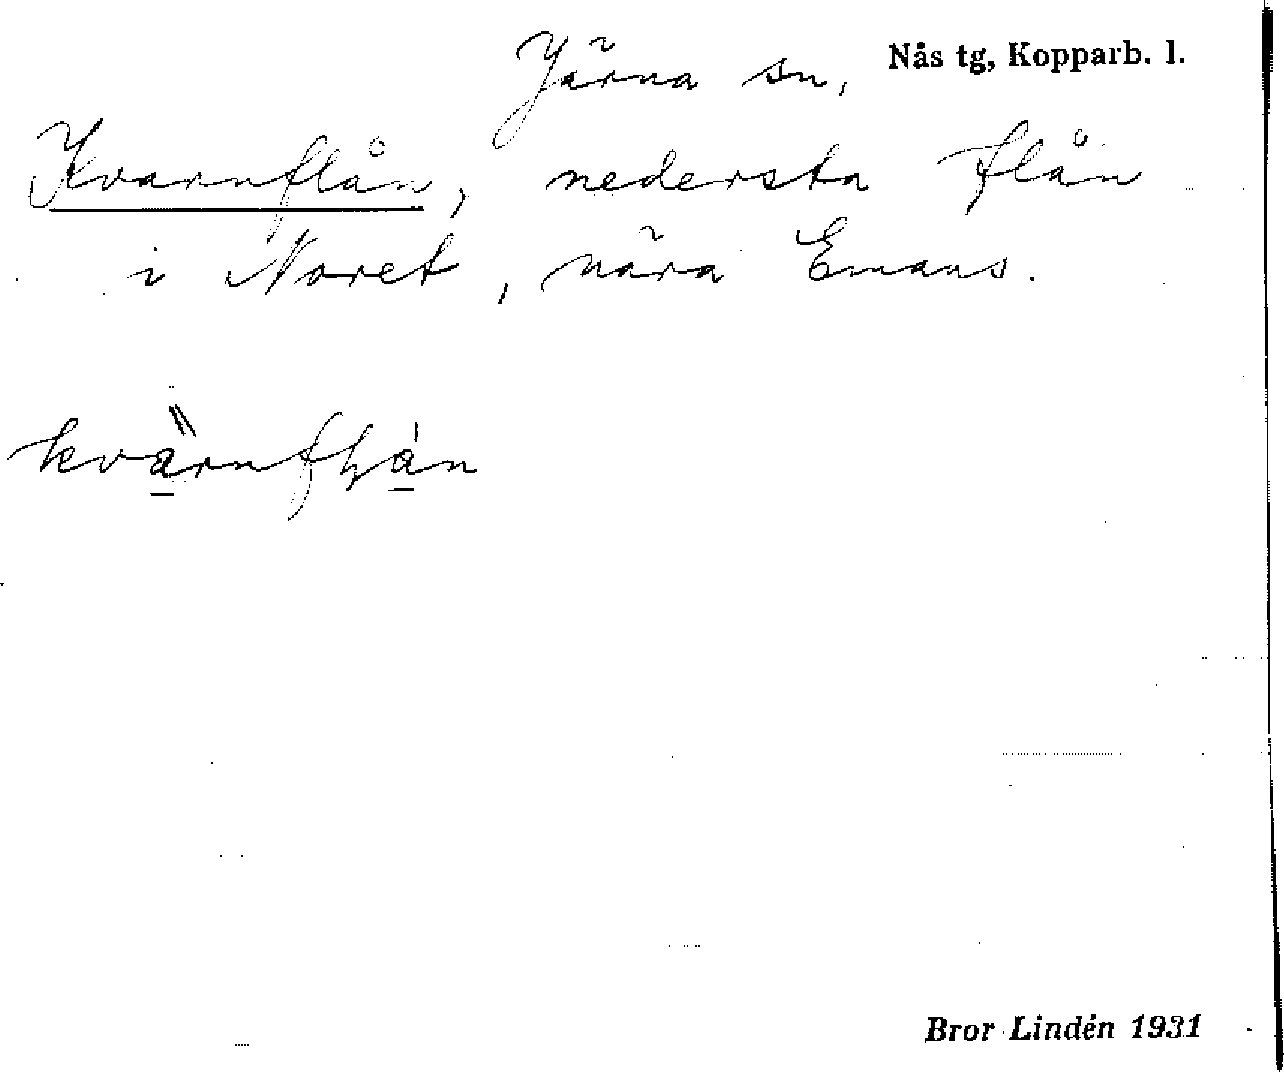 Järna sn, Nås tg, Kopparb. l.
Kvarnflån, nedersta flån
i Noret, nära Emaus.
Bror Lindén 1931